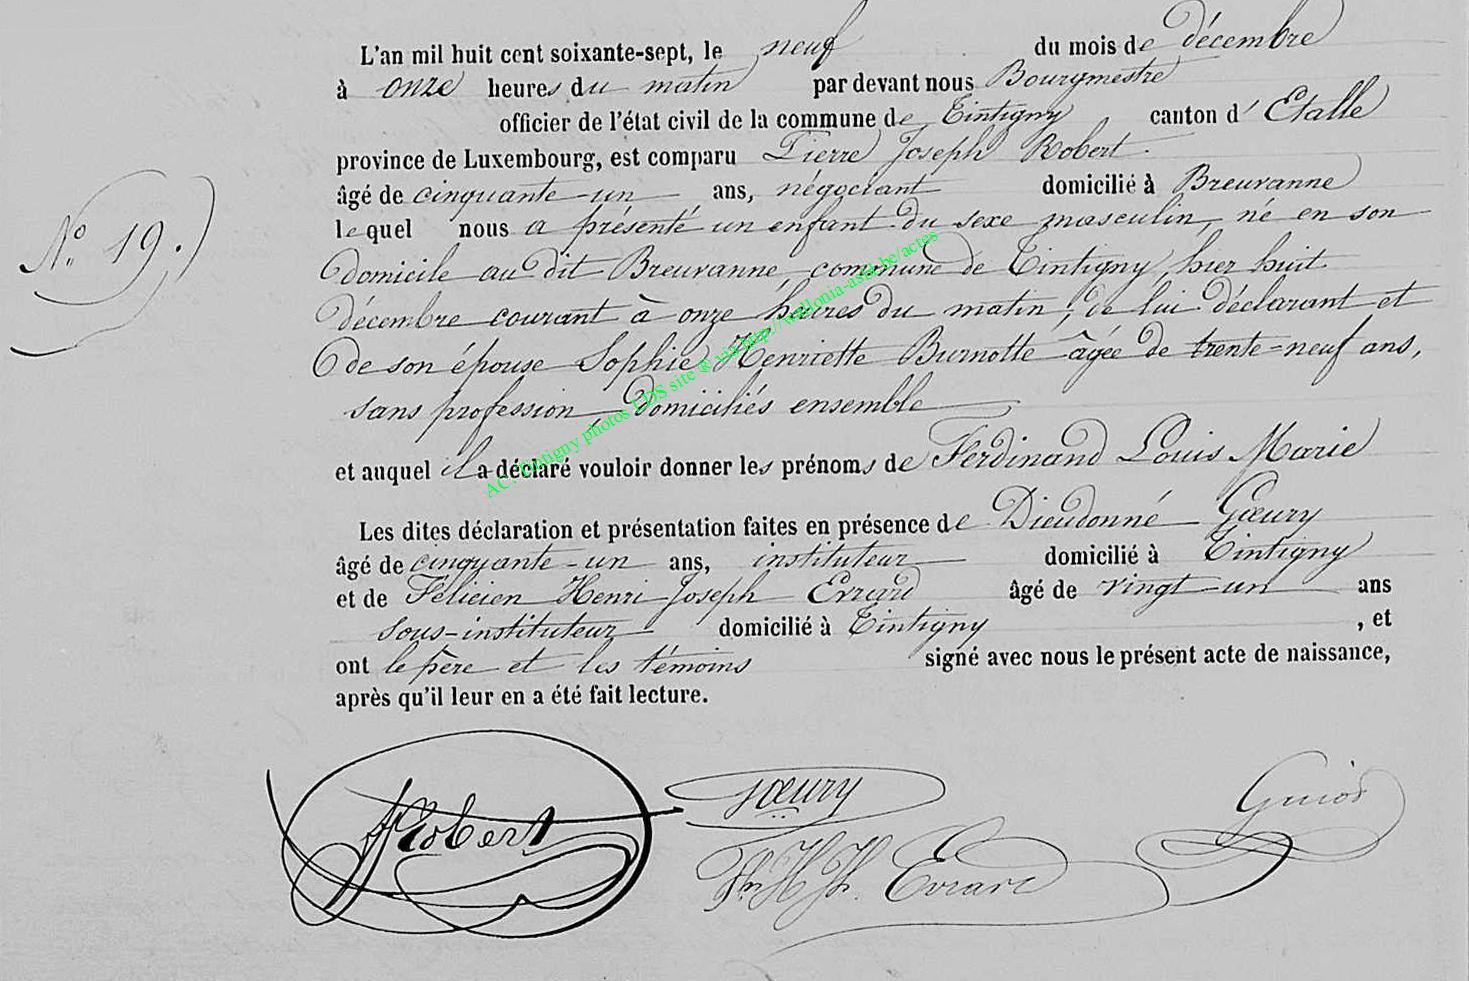 L'an mil huit cent soixante-sept, le neuf du mois de décembre
à onze heures du matin par devant nous Bourgmestre
officier de l'état civil de la commune de Tintigny canton d'Etalle
province de Luxembourg, est comparu Pierre Joseph Robert.
âgé de cinquante-un ans, négociant domicilié à Breuvanne
N° 19.
lequel nous a présenté un enfant du sexe masculin, né en son
domicile au dit Breuvanne, commune de Tintigny, hier huit
décembre courant à onze heures du matin, de lui déclarant et
de son épouse Sophie Henriette Burnotte âgée de trente-neuf ans,
sans profession, domiciliés ensemble
et auquel il a déclaré vouloir donner les prénoms de Ferdinand Louis Marie
AC. Tintigny photos LDS site @ via http://wallonia-asbl.be/actes
Les dites déclaration et présentation faites en présence de Dieudonné Gœury
âgé de cinquante-un ans, instituteur domicilié à Tintigny
et de Félicien Henri Joseph Evrard âgé de vingt-un ans
sous-instituteur domicilié à Tintigny, et
ont le père et les témoins signé avec nous le présent acte de naissance,
après qu'il leur en a été fait lecture.
Robert Gœury
Evrard